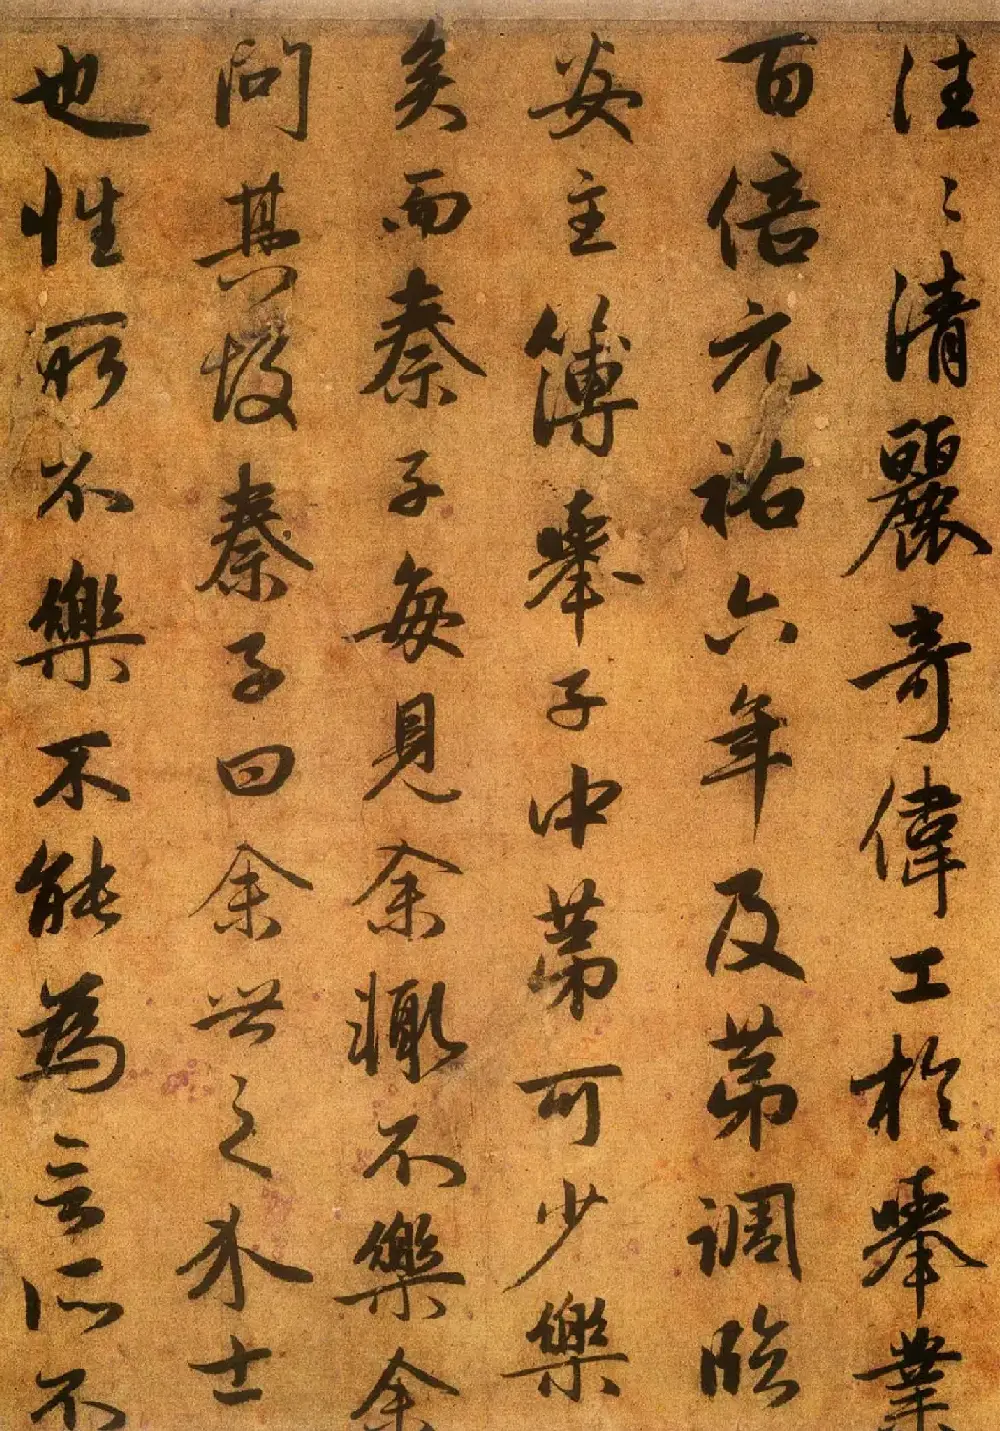 往〻清麗奇偉工於舉業
百倍元祐六年及第調臨
安主簿舉子中第可少樂
矣而秦子每見余輒不樂余
問其故秦子曰余世之介士
也性所不樂不能為言所不